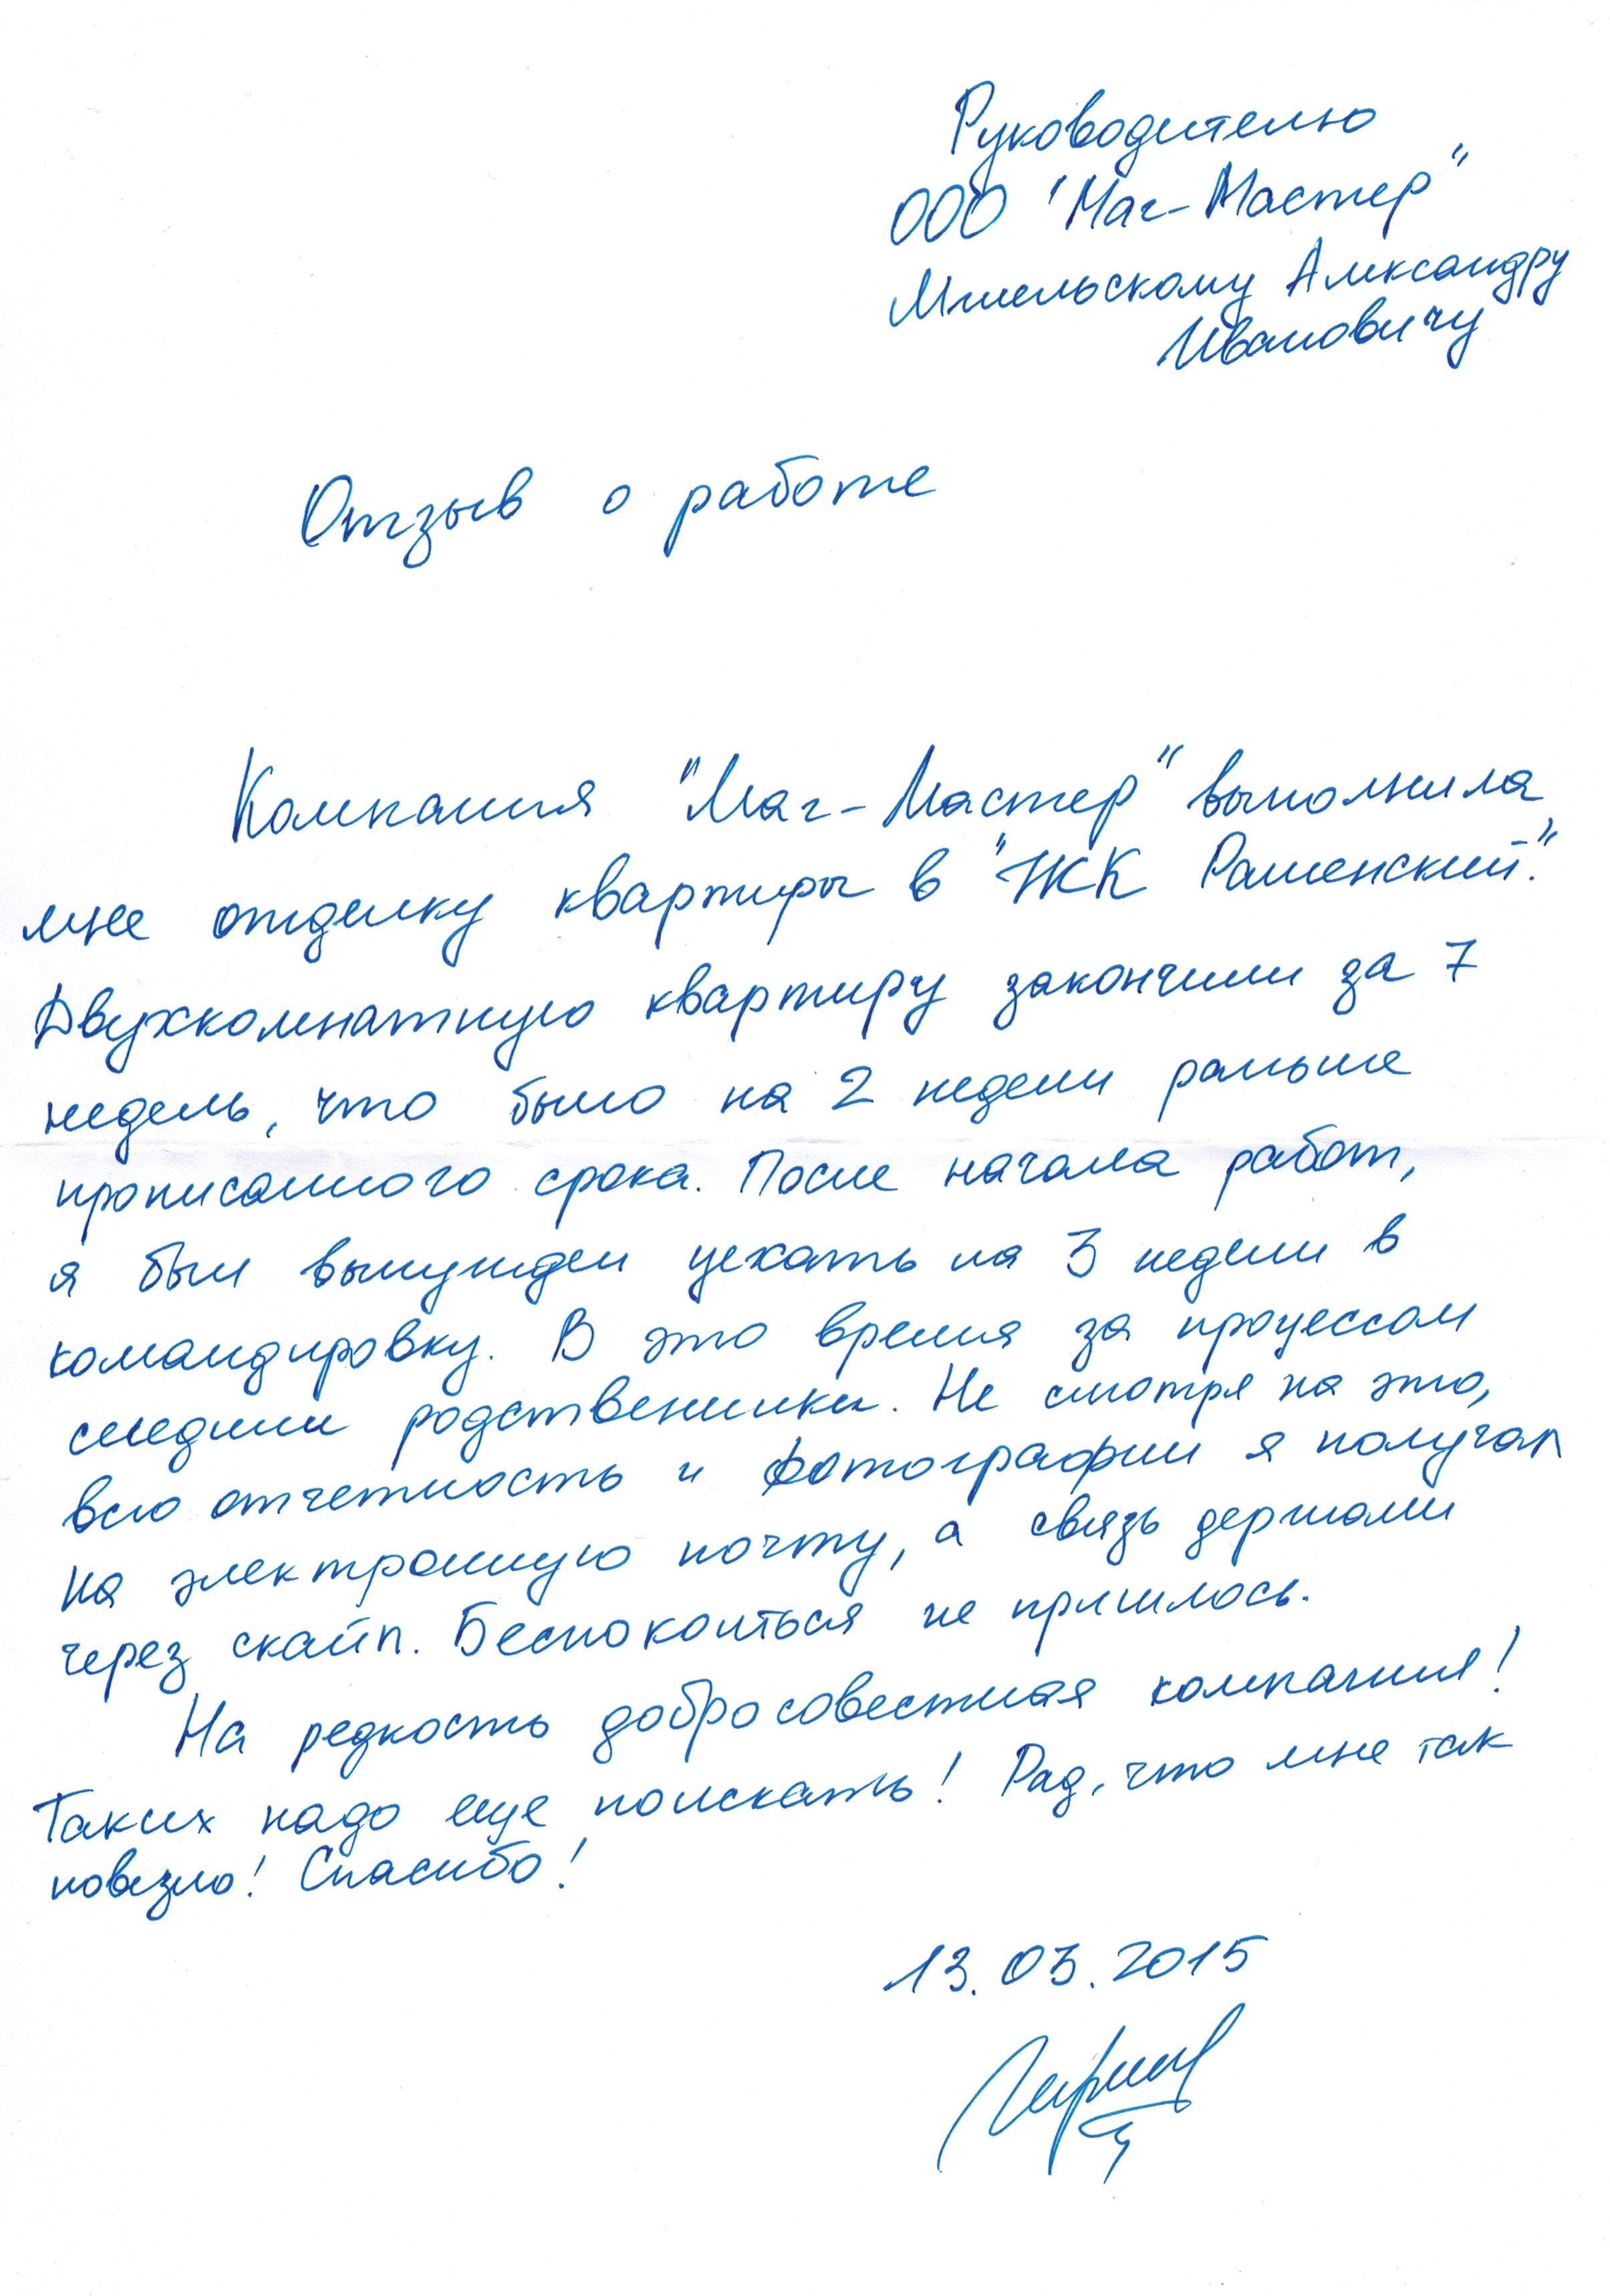 Руководителю
ООО "Маг-Мастер"
Александру
Ивановичу
Отзыв о работе
Компания "Маг-Мастер" выполнила
мне отделку квартиры в "ЖК Раменский".
Двухкомнатную квартиру закончили за 7
недель, что было на 2 недели раньше
прописанного срока. После начала работ,
я был вынужден уехать на 3 недели в
командировку. В это время за процессом
следили родственники. Не смотря на это,
всю отчетность и фотографии я получал
на электронную почту, а связь держали
через скайп. Беспокоиться не пришлось.
На редкость добросовестная компания!
Таких надо еще поискать! Рад, что мне так
повезло! Спасибо!
13.03.2015